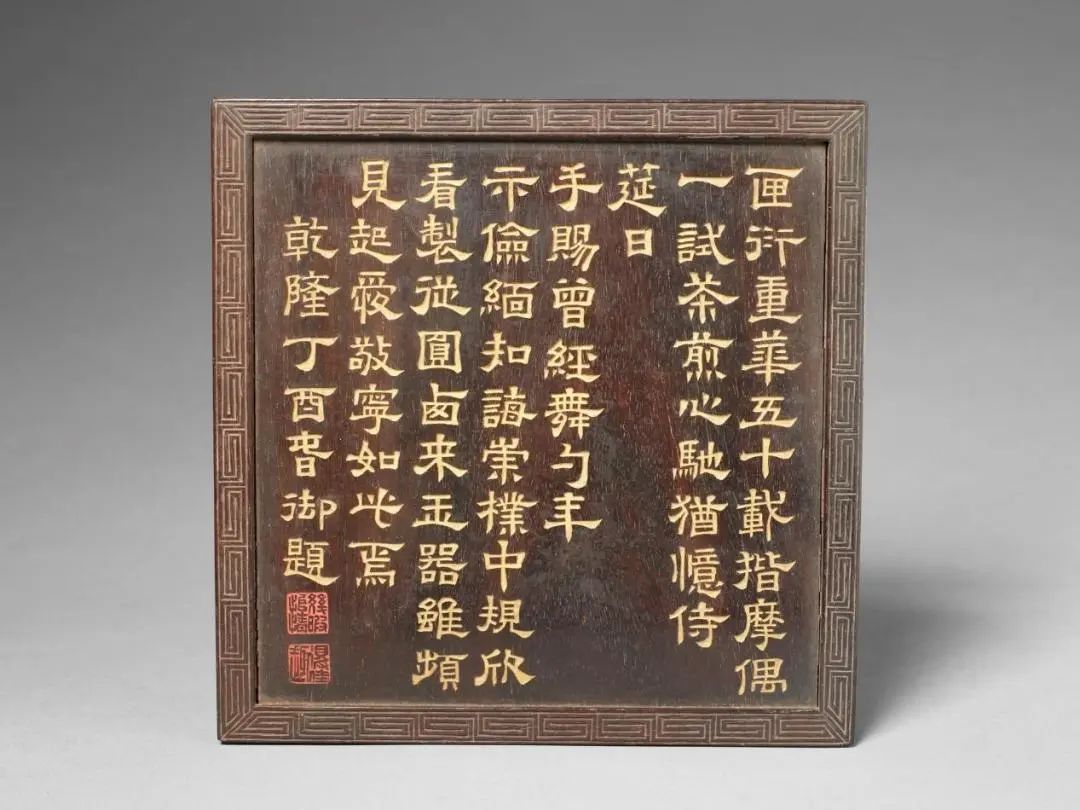 匣衍重華五十載揩摩偶
一試茶煎心馳猶憶侍
莚日
手賜曾經舞勺年
示儉緬知誨崇樸中規欣
看製從圓卤来玉器雖頻
見起愛敬寧如此焉
乾隆丁酉春御題
幾暇怡情
得佳趣